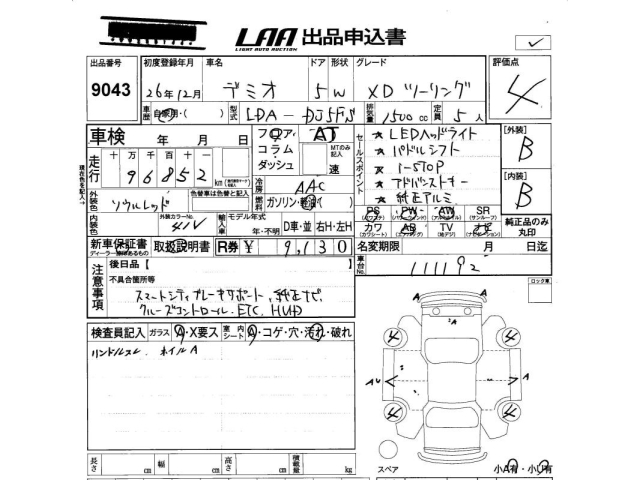 LAA 出品申込書
LIGHT AUTO AUCTION
出品番号 初度登録年月 車名 ドア 形状 グレード 評価点
9043 26年12月 デミオ 5 W XD ツーリング 4
車歴 自家用・( ) 型式 LDA-DJ5FS 排気量 1500 cc 定員 5 人
車検 年 月 日 フロア AT
コラム MTのみ記入
ダッシュ 速
走行 十 万 千 百 十 一
現在色を記入 96852 km
冷房 AAC
外装色 ソウルレッド 色替車は色替と記入 燃料 ガソリン・軽油( )
内装色 外装カラーNo. 41V 輸入車 モデル年式 年・不明 D車・並 右H・左H
セールスポイント
★ LEDヘッドライト
★ パドルシフト
★ i-STOP
★ アドバンストキー
★ 純正アルミ
[外装] B
[内装] B
PS PW AW SR
(パワーウィンド) (サンルーフ)
カワ AB TV ナビ
(カワシート) (エアバッグ) (地デジ)
純正品のみ丸印
新車保証書 取扱説明書 R券 ¥ 9,130 名変期限 月 日迄
注意事項 後日品【 】 車台No. 111192
不具合箇所等
スマートシティブレーキサポート、純正ナビ、
クルーズコントロール、ETC、HUD
ロック車
検査員記入 ガラス A・X要ス 車内シート A・コゲ・穴・汚れ・破れ
ハンドルスレ ホイルA
A A
4 4
A A
4 4
長さ cm 幅 cm 高さ cm 積載量 kg
スペア 小A有・小U有